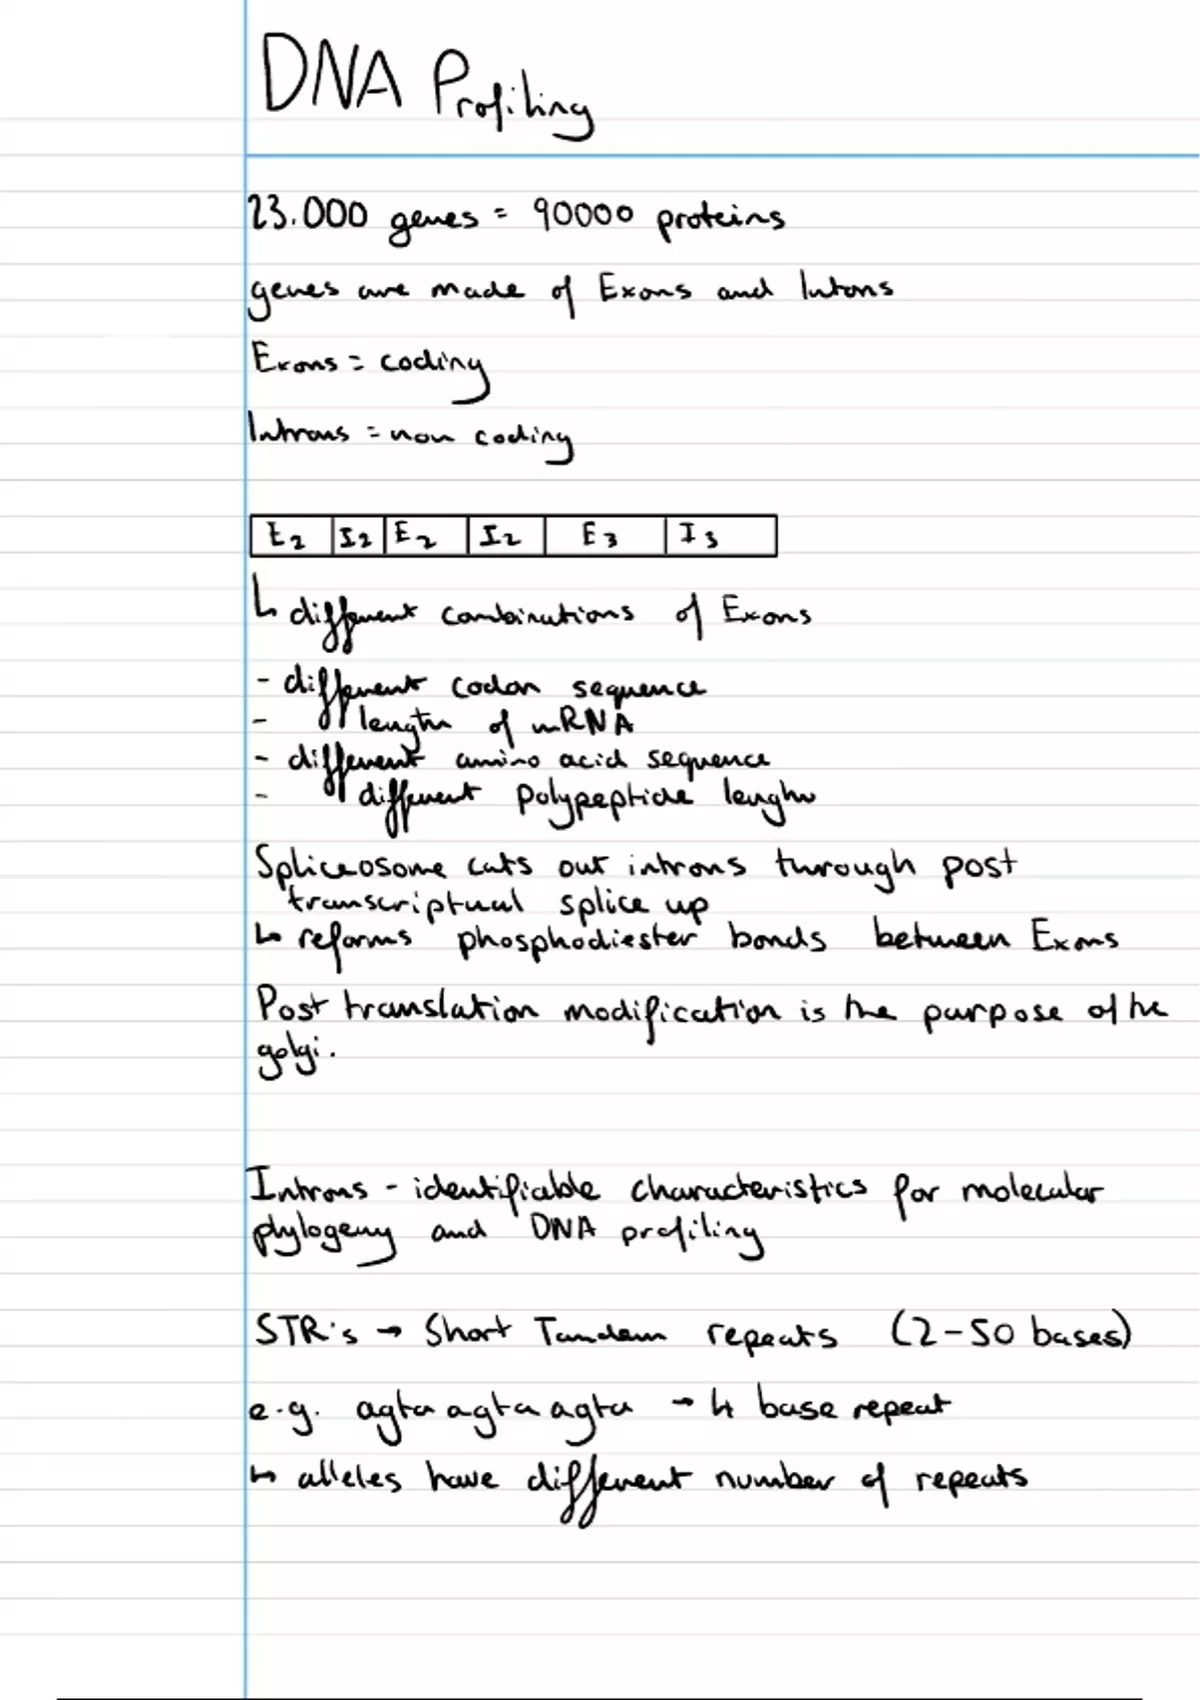 DNA Profiling
23.000 genes = 90000 proteins
genes are made of Exons and Intons
Exons = coding
Introns = non coding
E2 I2 E2 I2 E3 I3
↳ different combinations of Exons
- different codon sequence
- length of mRNA
- different amino acid sequence
- different polypeptide lengths
Spliceosome cuts out introns through post
transcriptual splice up
↳ reforms phosphodiester bonds between Exons
Post translation modification is the purpose of the
golgi.
Introns - identifiable characteristics for molecular
phylogeny and DNA profiling
STR's → Short Tandem repeats (2-50 bases)
e.g. agta agta agta → 4 base repeat
↳ alleles have different number of repeats